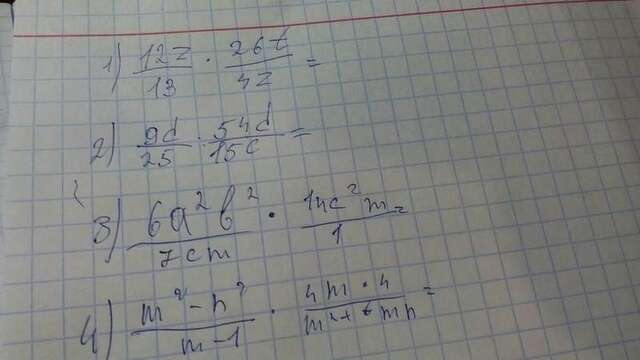 1) 12z/13 · 26t/4z =
2) 9d/25 · 54d/15c =
3) 6a²b²/7cm · 14c²m/1 =
4) m²-n²/m-1 · 4m·4/m²+6mn =